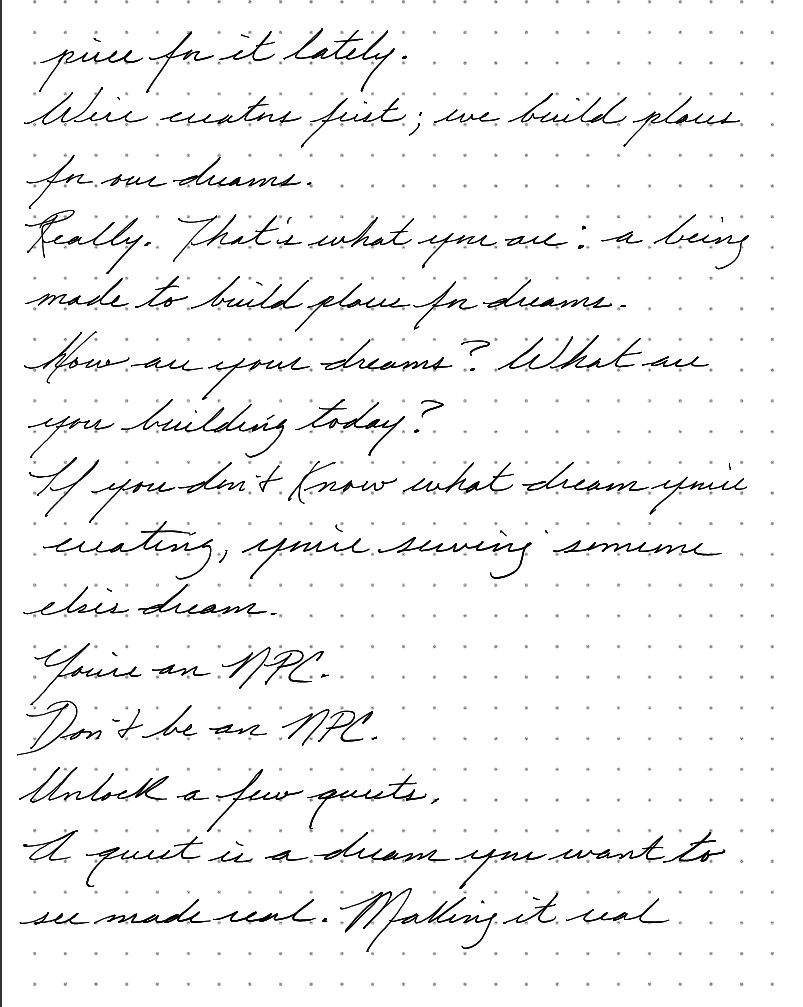 piece for it lately.
We're creators first; we build places
for our dreams.
Really. That's what you are: a being
made to build places for dreams.
How are your dreams? What are
you building today?
If you don't know what dream you're
creating, you're serving someone
else's dream.
You're an NPC.
Don't be an NPC.
Unlock a few quests.
A quest is a dream you want to
see made real. Making it real